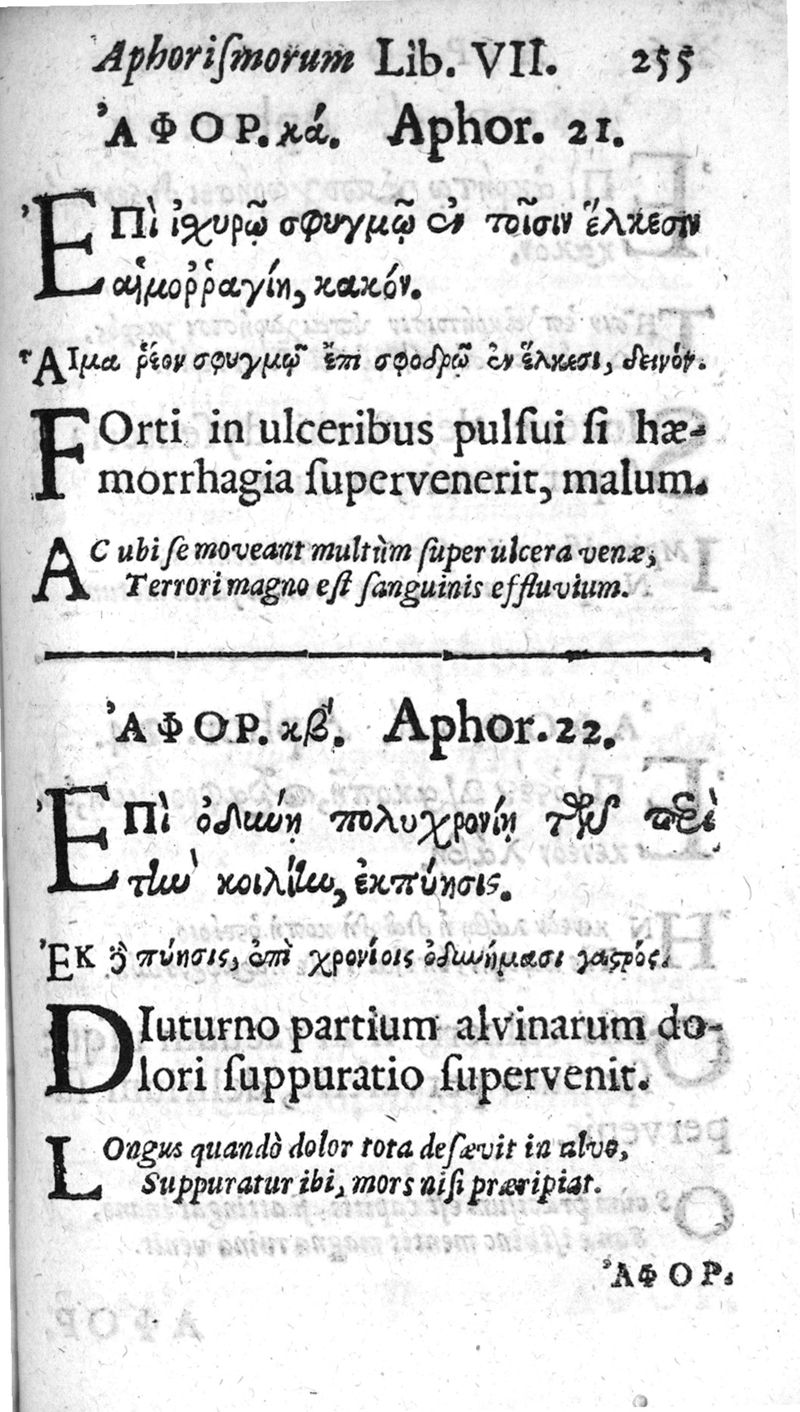 Aphoriſmorum Lib. VII. 255
ἈΦΟΡ. κά. Aphor. 21.
ἘΠὶ ἰχυρῷ σφυγμῷ ἐν τοῖσιν ἕλκεσιν
αἱμοῤῥαγίη, κακόν.
ΑἹμα ῥέον σφυγμῷ ἔπι σφοδρῷ ἐν ἕλκεσι, δεινόν.
FOrti in ulceribus pulſui ſi hæ-
morrhagia ſupervenerit, malum.
AC ubi ſe moveant multùm ſuper ulcera venæ,
Terrori magno eſt ſanguinis effluvium.
ἈΦΟΡ. κβ'. Aphor. 22.
ἘΠὶ ὀδιώῃ πολυχρονίῃ τῶν περὶ
τὴν κοιλίην, ἐκπύησις.
ἘΚ δὲ πύησις, ἐπὶ χρονίοις ὀδυνήμασι γαϛρός.
DIuturno partium alvinarum do-
lori ſuppuratio ſupervenit.
LOngus quandò dolor tota deſævit in alvo,
Suppuratur ibi, mors niſi præripiat.
ἈΦΟΡ.